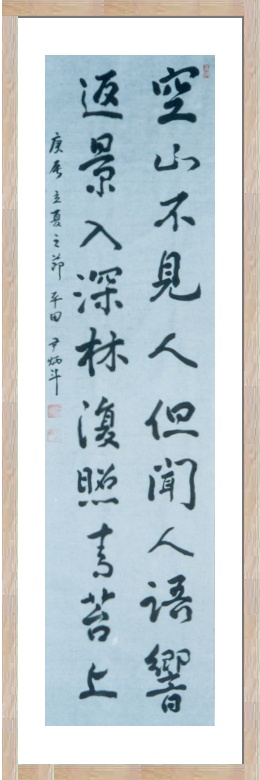 空山不見人但聞人語響
返景入深林復照青苔上
庚辰立夏之節 平田 尹炳斗